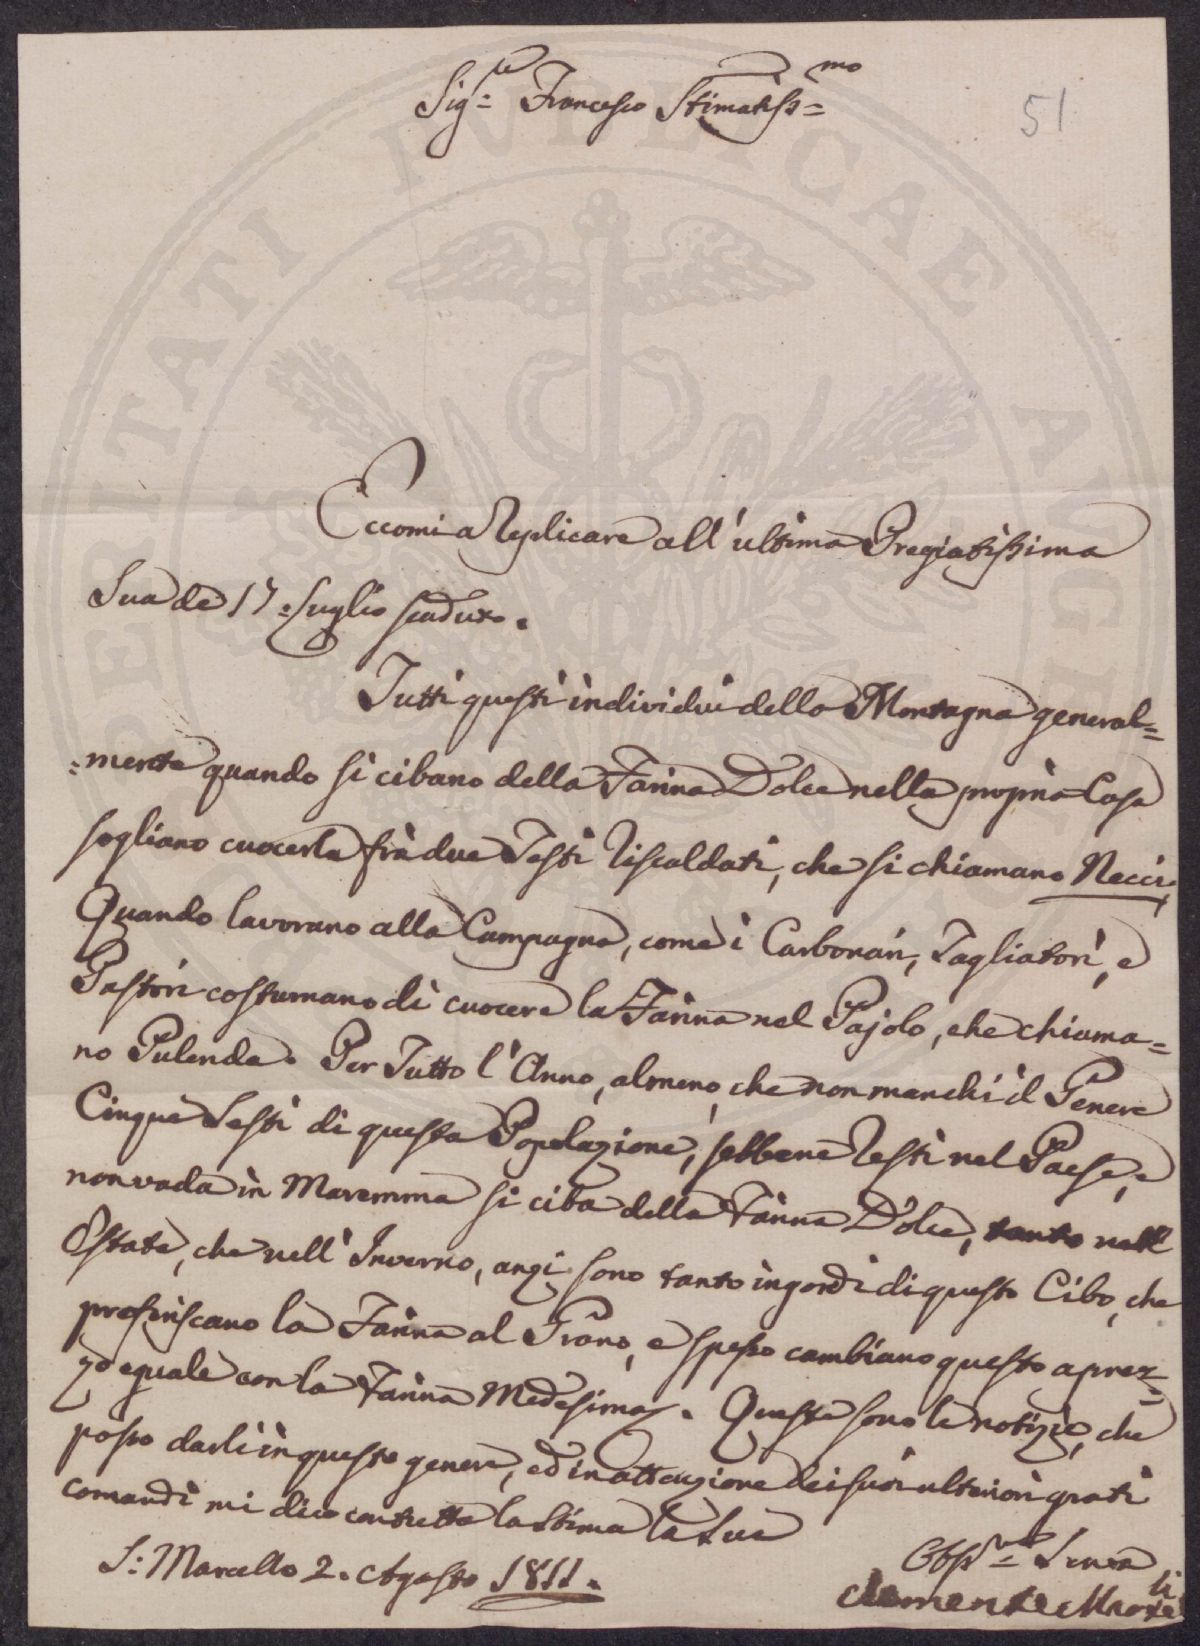 Sig.re Francesco Stimatiss.mo
51
Eccomi a Replicare all'ultima Pregiatissima
Sua de 17. Luglio scaduto.
Tutti questi individui della Montagna general=
=mente quando si cibano della Farina Dolce nella propria Casa
sogliano cuocerla frà due Testi Riscaldati, che si chiamano Necci,
Quando lavorano alla Campagna, come i Carbonari, Tagliatori, e
Pastori costumano di cuocere la Farina nel Pajolo, che chiama=
no Pulenda. Per Tutto l'Anno, almeno, che non manchi il Genere
Cinque Sesti di questa Popolazione, sebbene resti nel Paese, e
non vada in Maremma si ciba della Farina Dolce, tanto nell'
Estate, che nell'Inverno, anzi sono tanto ingordi di questo Cibo, che
preferiscano la Farina al Grano, e spesso cambiano questo a prez=
zo eguale con la Farina Medesima. Queste sono le notizie, che
posso darli in questo genere, ed in attenzione dei suoi ulteriori grati
comandi mi dico con tutta la stima
S. Marcello 2. Agosto 1811.
Clemente
PERITATI PVBLICAE AVGE